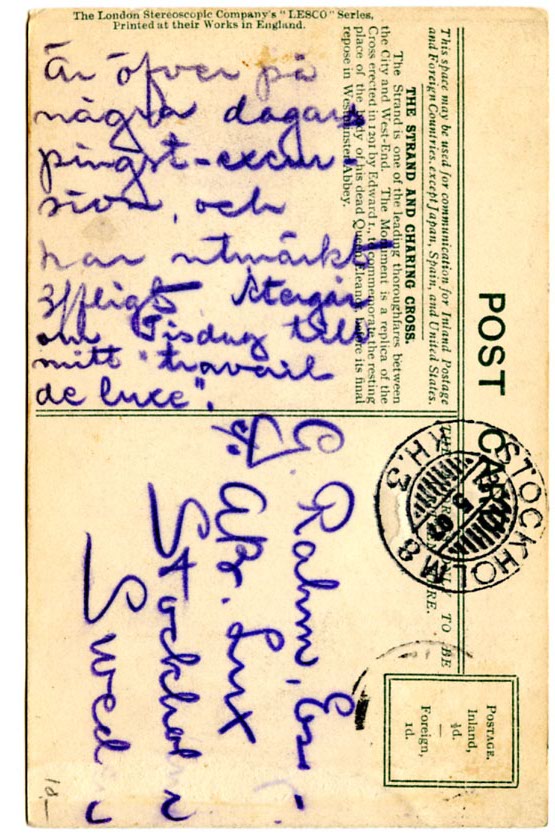 The London Stereoscopic Company's "LESCO" Series,
Printed at their Works in England.
Är öfver på
några dagars
pingst-excur-
sion, och
har utmärkt
Återgår
om Tisdag till
mitt "travail
de luxe".
This space may be used for communication for Inland Postage
and Foreign Countries, except Japan, Spain, and United States.
THE STRAND AND CHARING CROSS.
The Strand is one of the leading thoroughfares between
the City and West-End. The Monument is a replica of the
Cross erected in 1291 by Edward I., to commemorate the resting
place of the body of his dead Queen Eleanor, before its final
repose in Westminster Abbey.
POST CARD
TO BE
STOCKHOLM
POSTAGE.
Inland,
½d.
—
Foreign,
1d.
G. Rahm, Esq.
AB. Lux
Stockholm
Sweden